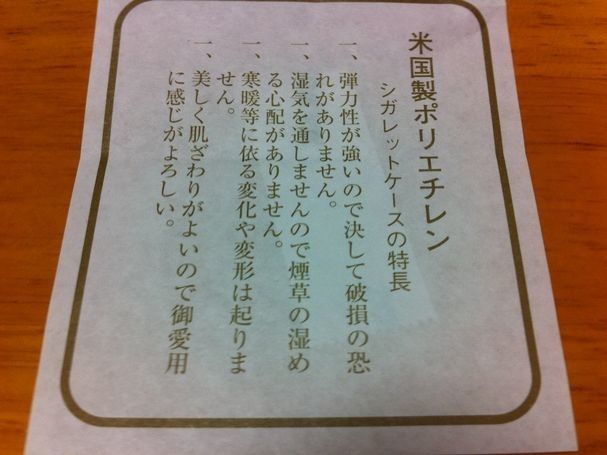 米国製ポリエチレン
シガレットケースの特長
一、弾力性が強いので決して破損の恐
れがありません。
一、湿気を通しませんので煙草の湿め
る心配がありません。
一、寒暖等に依る変化や変形は起りま
せん。
一、美しく肌ざわりがよいので御愛用
に感じがよろしい。